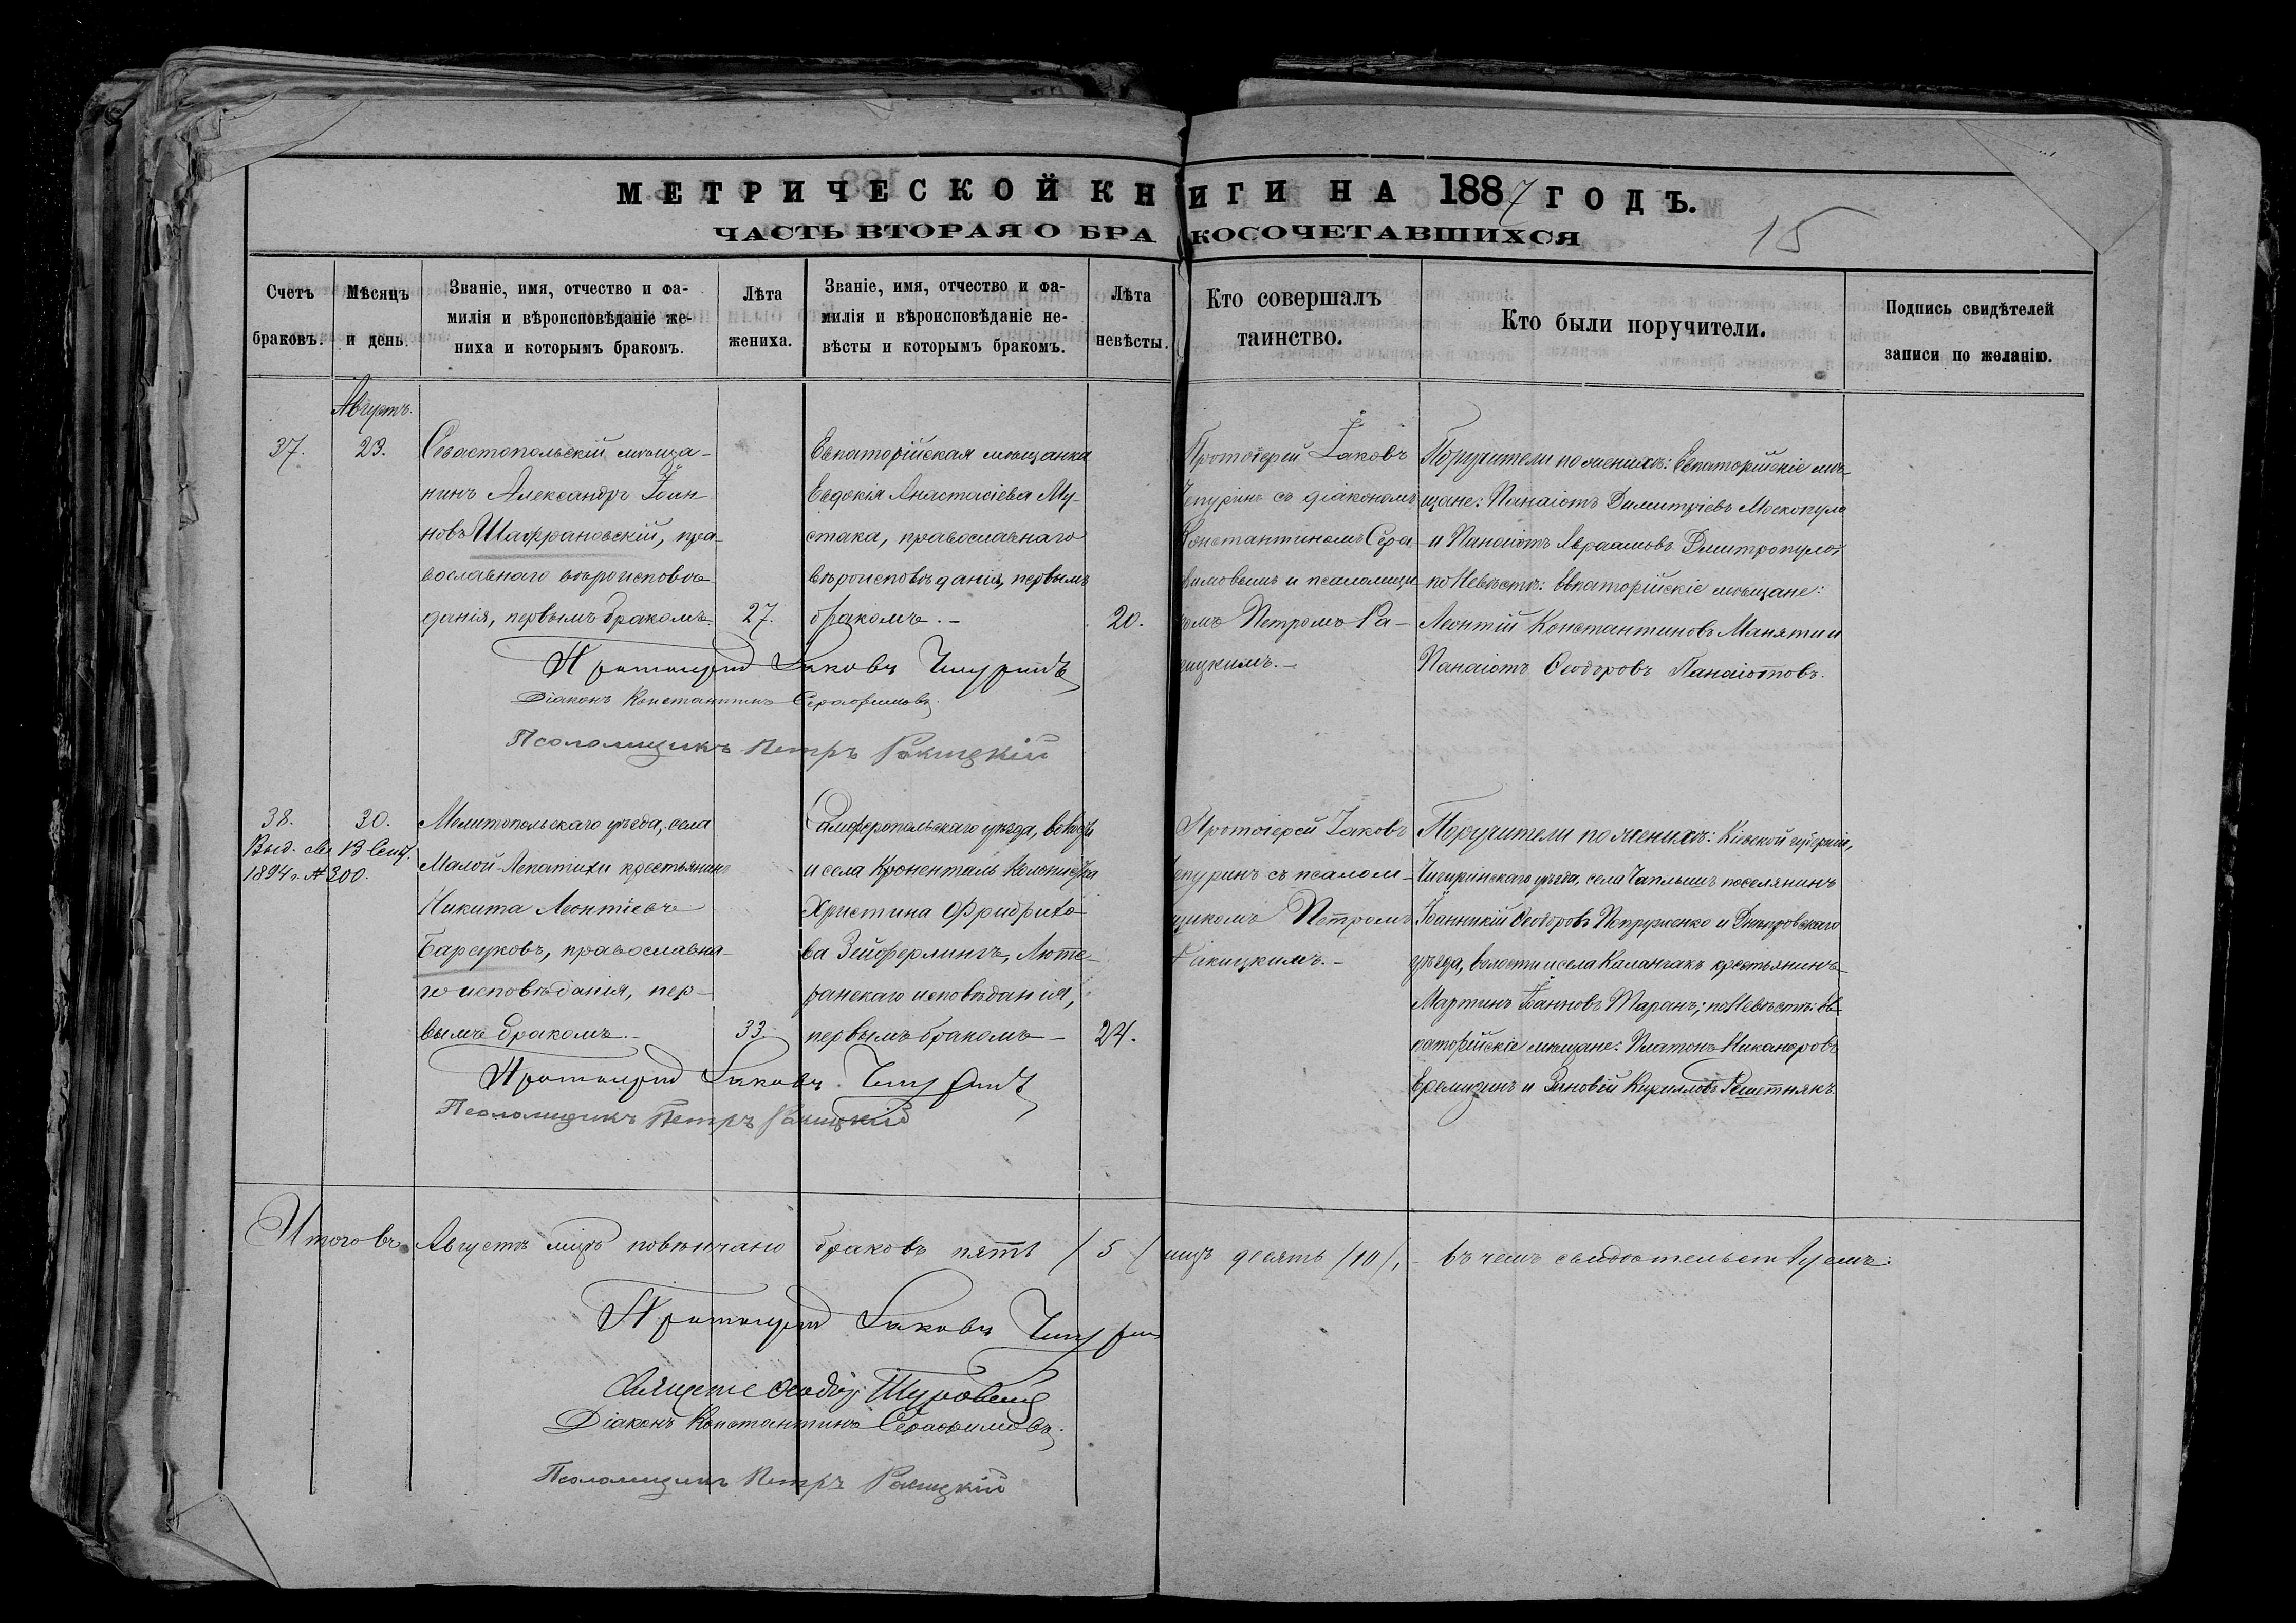 МЕТРИЧЕСКОЙ КНИГИ НА 1887 ГОДЪ.
15
ЧАСТЬ ВТОРАЯ О БРАКОСОЧЕТАВШИХСЯ
Счетъ браковъ.
Мѣсяцъ и день.
Званіе, имя, отчество и фа-
милія и вѣроисповѣданіе же-
ниха и которымъ бракомъ.
Лѣта жениха.
Званіе, имя, отчество и фа-
милія и вѣроисповѣданіе не-
вѣсты и которымъ бракомъ.
Лѣта невѣсты.
Кто совершалъ
таинство.
Кто были поручители.
Подпись свидѣтелей
записи по желанію.
Августъ.
37.
23.
Севастопольскій мѣща-
нинъ Александръ Іоан
новъ Шафрановскій, пра-
вославнаго вѣроисповѣ-
данія, первымъ бракомъ.
27.
Евпаторійская мѣщанка
Евдокія Анастасіева Му-
стака, православнаго
вѣроисповѣданія, первымъ
бракомъ.-
20.
Протоіерей Іаковъ
Чепуринъ съ діакономъ
Константиномъ Сера
фимовымъ и псаломщи
комъ Петромъ Ра-
кицкимъ.-
Поручители по женихѣ: Евпаторійскіе мѣ-
щане: Панаіотъ Димитріевъ Москопуло
и Панаіотъ Авраамовъ Дмитропуло;
по Невѣстѣ: Евпаторійскіе мѣщане:
Леонтій Константиновъ Маняти и
Панаіотъ Ѳеодоровъ Панаіотовъ.
Протоіерей Іаковъ Чепуринъ
Діаконъ Константинъ Серафимовъ
Псаломщикъ Петръ Ракицкій
38.
30.
Выд. св. 13 Сент.
1894 г. № 300.
Мелитопольскаго уѣзда, села
Малой-Лепатихи крестьянинъ
Никита Леонтіевъ
Барсуковъ, православна-
го исповѣданія, пер-
вымъ бракомъ.-
33.
Симферопольскаго уѣзда, волости
и села Кроненталь колонистка
Христина Фридрихо-
ва Зейферлингъ, Люте-
ранскаго исповѣданія,
первымъ бракомъ-
24.
Протоіерей Іаковъ
Чепуринъ съ псалом-
щикомъ Петромъ
Ракицкимъ.-
Поручители по женихѣ: Кіевской губерніи,
Чигиринскаго уѣзда, села Чаплыщъ поселянинъ
Іоанникій Ѳеодоровъ Петруженко и Днѣпровскаго
уѣзда, волости и села Каланчакъ крестьянинъ
Мартинъ Іоанновъ Таранъ; по Невѣстѣ: Ев-
паторійскіе мѣщане: Платонъ Никаноровъ
Еремизинъ и Зиновій Кирилловъ Решетнякъ.
Протоіерей Іаковъ Чепуринъ
Псаломщикъ Петръ Ракицкій
Итого въ Августѣ мцѣ повѣнчано браковъ пять /5/ лицъ десять /10/, въ чемъ свидѣтельствуемъ:
Протоіерей Іаковъ Чепуринъ
Священ. Ѳеодоръ
Діаконъ Константинъ Серафимовъ.
Псаломщикъ Петръ Ракицкій